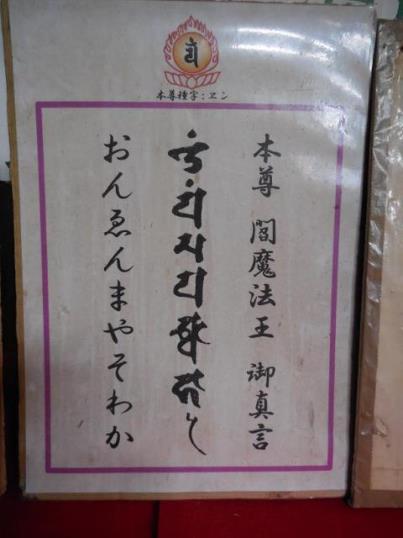 本尊種字：ヱン
本尊 閻魔法王 御真言
おんゑんまやそわか